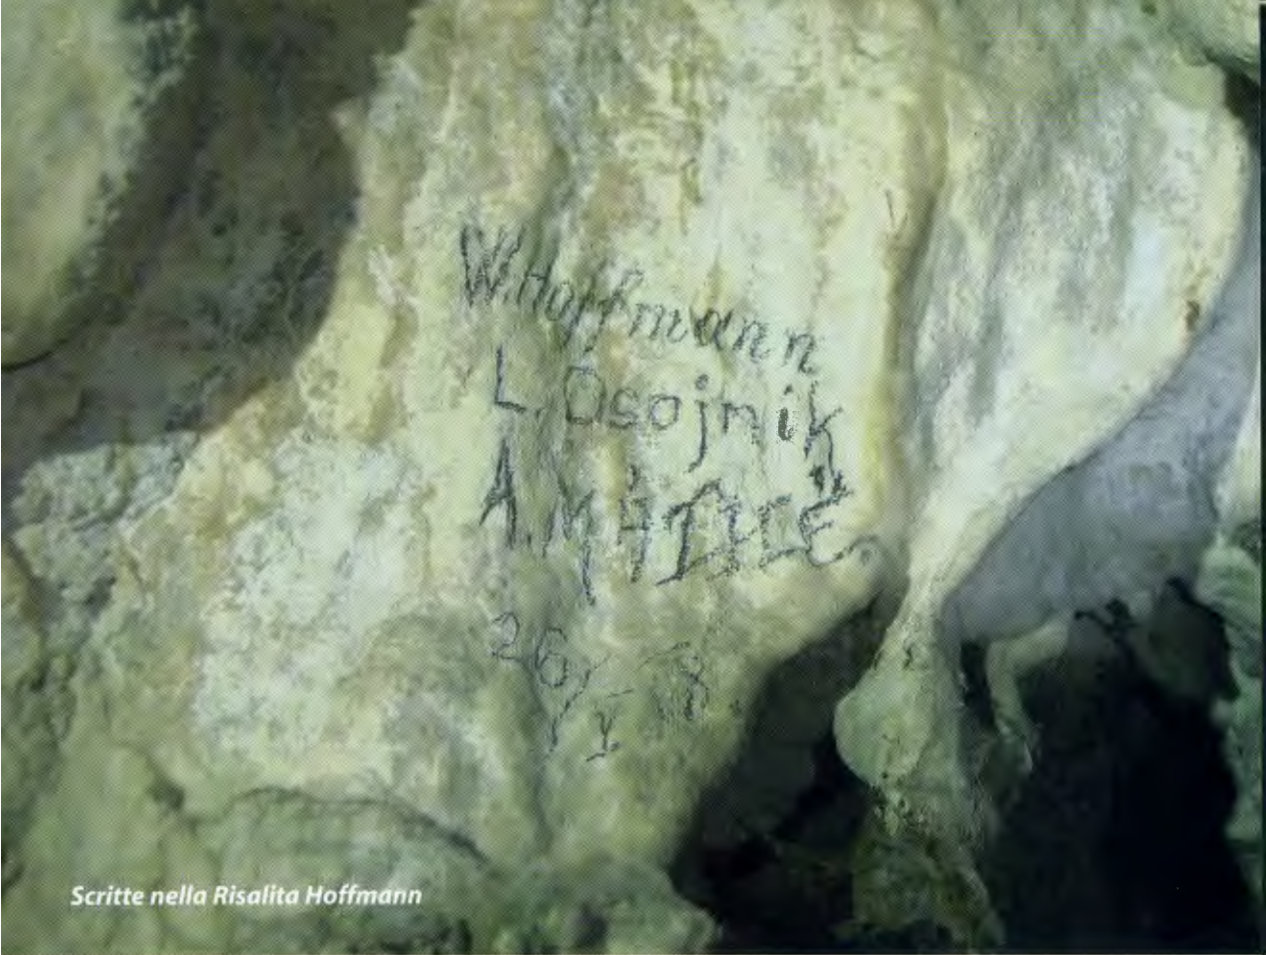 W. Hoffmann
L. Osojnik
A.
26/V
Scritte nella Risalita Hoffmann